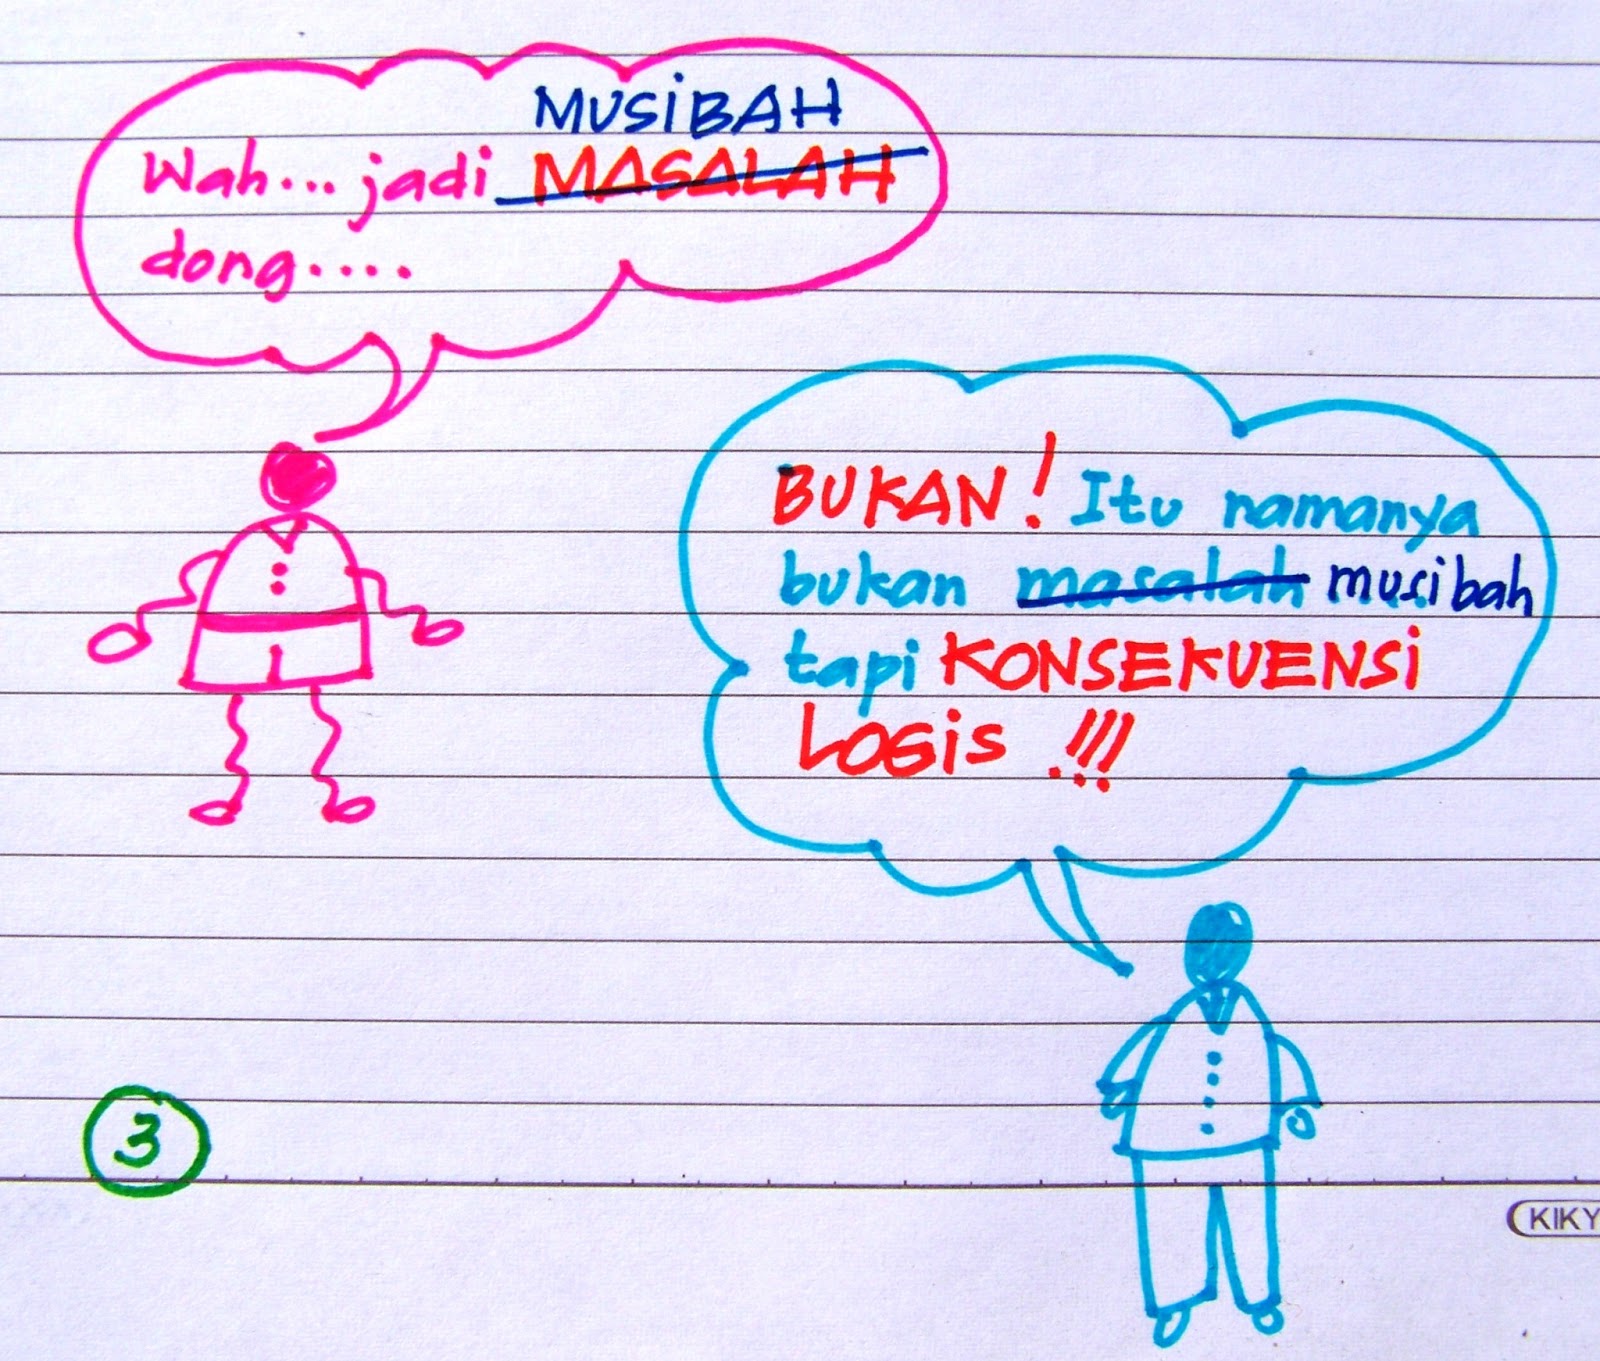 MUSIBAH
Wah... jadi MASALAH
dong.....
BUKAN! Itu namanya
bukan masalah musibah
tapi KONSEKUENSI
LOGIS !!!
3
KIKY